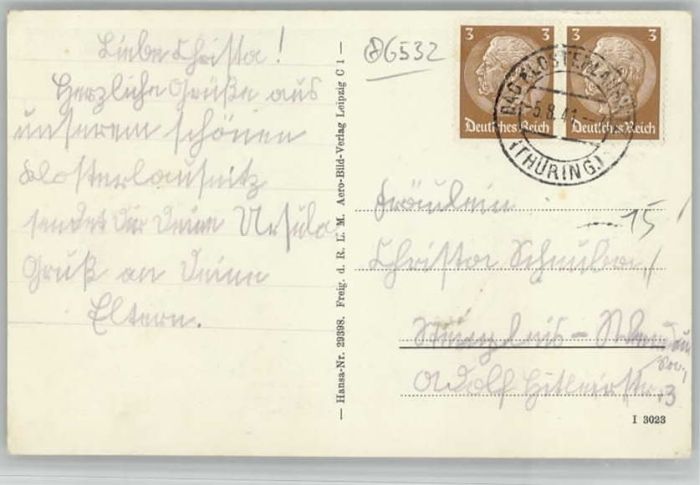 Liebe Christa!
Herzliche Grüße aus
unserem schönen
Klosterlausnitz
sendet dir deine Ursula
Gruß an deine
Eltern.
— Hansa-Nr. 29398. Freig. d. R. L. M. Aero-Bild-Verlag Leipzig C 1 —
86532
3 3 3 3
Deutsches Reich Deutsches Reich
BAD KLOSTERLAUSNITZ
5.8.41
(THÜRING.)
Fräulein
15
Christa
Adolf Hitlerstr. 3
I 3023